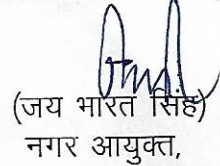 (जय भारत सिंह)
नगर आयुक्त,